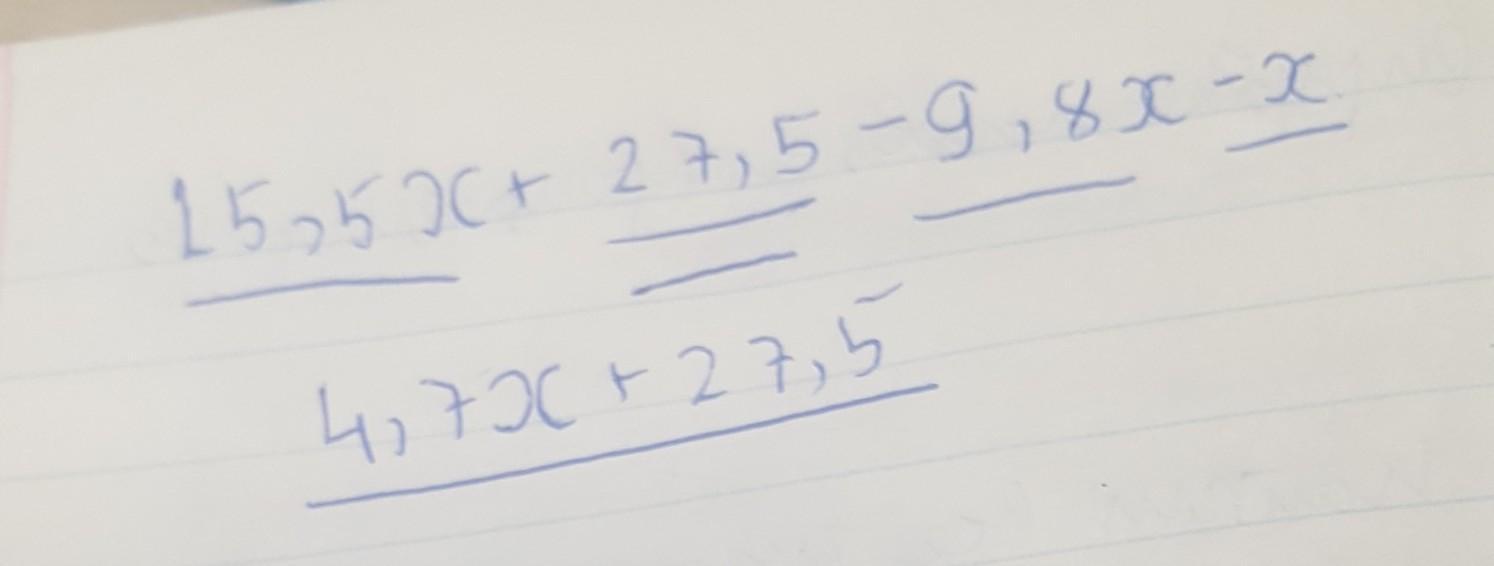 15,5x + 27,5 - 9,8x - x
4,7x + 27,5